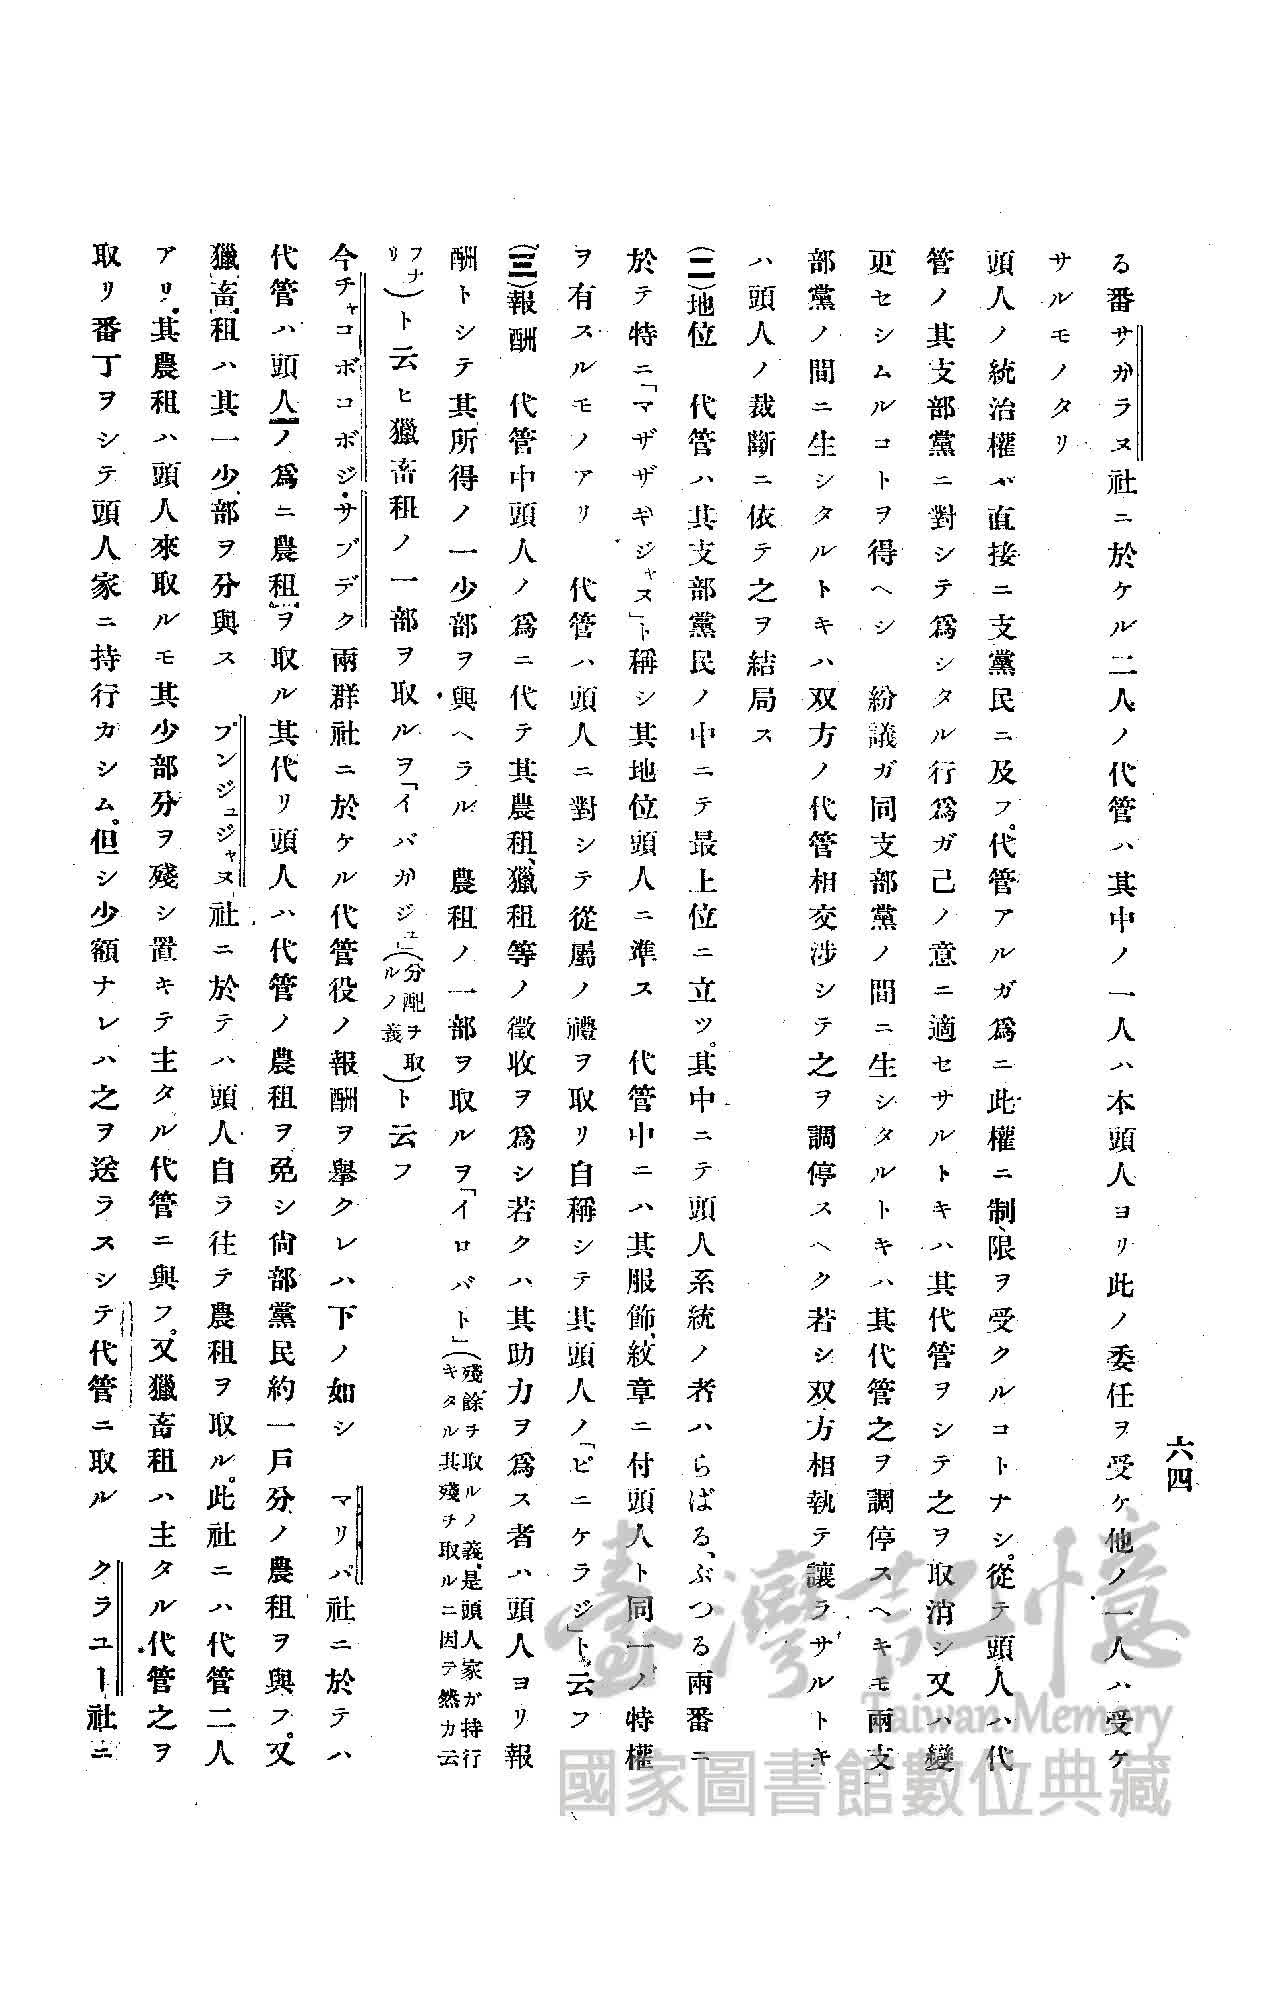 六四
る番サカラヌ社ニ於ケル二人ノ代管ハ其中ノ一人ハ本頭人ヨリ此ノ委任ヲ受ケ他ノ一人ハ受ケ
サルモノタリ
頭人ノ統治權ガ直接ニ支黨民ニ及フ。代管アルガ爲ニ此權ニ制限ヲ受クルコトナシ。從テ頭人ハ代
管ノ其支部黨ニ對シテ爲シタル行爲ガ己ノ意ニ適セサルトキハ其代管ヲシテ之ヲ取消シ又ハ變
更セシムルコトヲ得ヘシ　紛議ガ同支部黨ノ間ニ生シタルトキハ其代管之ヲ調停スヘキモ兩支
部黨ノ間ニ生シタルトキハ双方ノ代管相交渉シテ之ヲ調停スヘク若シ双方相執テ讓ラサルトキ
ハ頭人ノ裁斷ニ依テ之ヲ結局ス
(二)地位　代管ハ其支部黨民ノ中ニテ最上位ニ立ツ。其中ニテ頭人系統ノ者ハらばる、ぶつる兩番ニ
於テ特ニ「マザザギジャヌ」ト稱シ其地位頭人ニ準ス　代管中ニハ其服飾、紋章ニ付頭人ト同一ノ特權
ヲ有スルモノアリ　代管ハ頭人ニ對シテ從屬ノ禮ヲ取リ自稱シテ其頭人ノ「ピニケラジ」ト云フ
(三)報酬　代管中頭人ノ爲ニ代テ其農租、獵租等ノ徵收ヲ爲シ若クハ其助力ヲ爲ス者ハ頭人ヨリ報
酬トシテ其所得ノ一少部ヲ與ヘラル　農租ノ一部ヲ取ルヲ「イロバト」(殘餘ヲ取ルノ義、是頭人家ガ持行キタル其殘ヲ取ルニ因テ然カ云
フナリ)ト云ヒ獵畜租ノ一部ヲ取ルヲ「イバカジュ」(分配ヲ取ルノ義)ト云フ
今チャコボコボジ・サブデク兩群社ニ於ケル代管役ノ報酬ヲ擧クレハ下ノ如シ　マリバ社ニ於テハ
代管ハ頭人ノ爲ニ農租ヲ取ル其代リ頭人ハ代管ノ農租ヲ免シ尙部黨民約一戶分ノ農租ヲ與フ。又
獵畜租ハ其一少部ヲ分與ス　プンジュジャヌ社ニ於テハ頭人自ラ往テ農租ヲ取ル。此社ニハ代管二人
アリ。其農租ハ頭人來取ルモ其少部分ヲ殘シ置キテ主タル代管ニ與フ。又獵畜租ハ主タル代管之ヲ
取リ番丁ヲシテ頭人家ニ持行カシム。但シ少額ナレハ之ヲ送ラスシテ代管ニ取ル　クラユー社ニ
臺灣記憶
Taiwan Memory
國家圖書館數位典藏